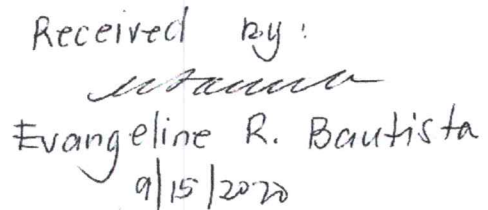 Received by:
Evangeline R. Bautista
9/15/2020